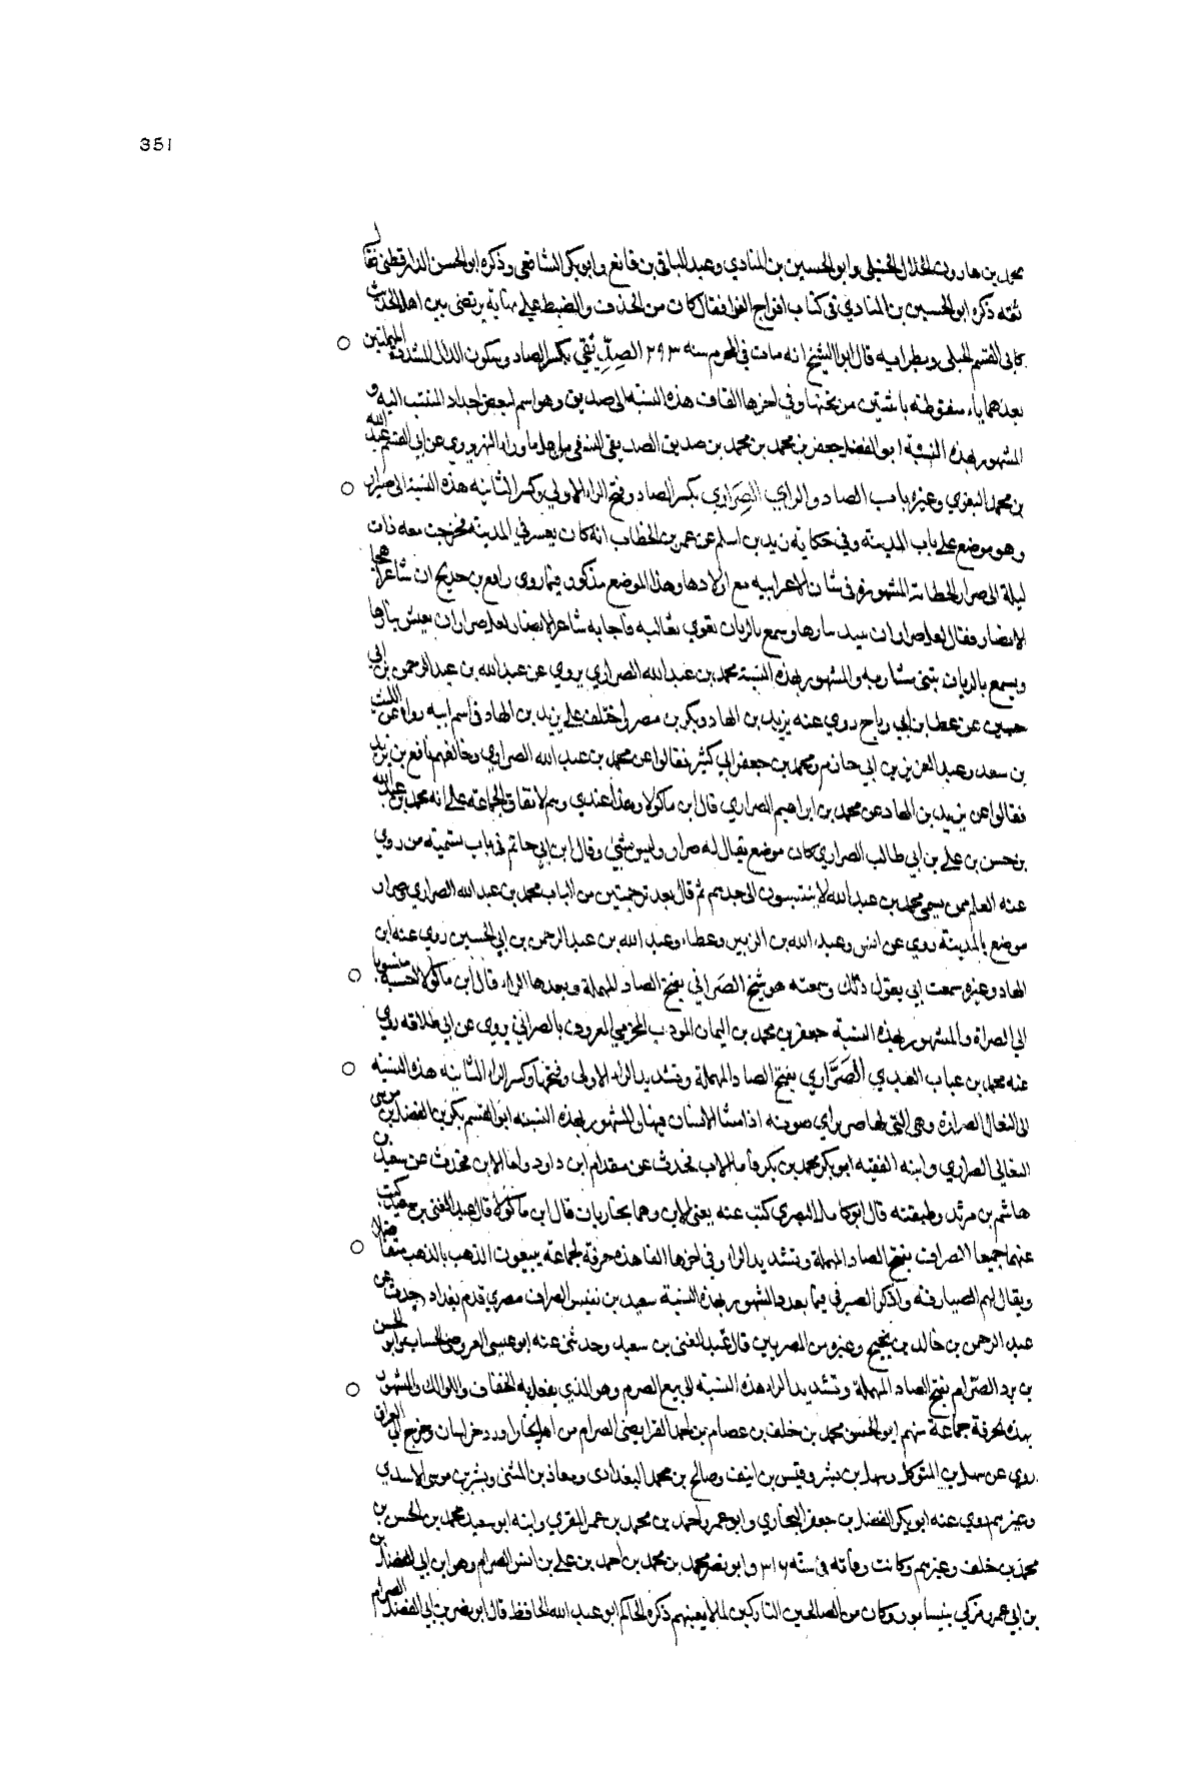 351
محمد بن هارون الخلال الحنبلي وابو الحسين بن المنادي وعبد الباقي بن قانع وابو بكر الشافعي وذكره ابو الحسن الدارقطني فقال
ثقة ذكره ابو الحسين بن المنادي في كتاب افواج القرا فقال كان من الحذق والضبط على نهاية يرتضى بين اهل الحديث
كابي القسم الجبلي ونظرائه قال ابو الشيخ انه مات في المحرم سنة ٢٩٣ الصِدِّيقي بكسر الصاد وسكون الدال المشددة المهملتين
بعدهما ياء منقوطة باثنتين من تحتها وفي اخرها القاف هذه النسبة الى صديق وهو اسم لبعض اجداد المنتسب اليه و
المشهور بهذه النسبة ابو الفضل جعفر بن محمد بن محمد بن صديق الصديقي النسفي من اهل ما وراء النهر يروي عن ابي القسم عبد الله
بن محمد البغوي وغيره باب الصاد والراي الصِراري بكسر الصاد وفتح الراء الاولى وكسر الثانية هذه النسبة الى صرار
وهو موضع على باب المدينة وفي حكاية زيد بن اسلم عن عمر بن الخطاب انه كان يعس في المدينة فخرجت معه ذات
ليلة الى صرار الحكاية المشهورة في شان الاعرابية مع اولادها وهذا الموضع مذكور فيما روى رافع بن خديج ان شاعرا هجا
الانصار فقال لعل صرارا ان تبيد بيارها ويسمع بالريان تعوي ثعالبه فاجابه شاعر الانصار لعل صرارا ان تعيش بيارها
ويسمع بالريان تبنى مشاربه والمشهور بهذه النسبة محمد بن عبد الله الصراري يروي عن عبد الله بن عبد الرحمن بن ابي
حسين عن عطا بن ابي رباح روى عنه يزيد بن الهاد وبكر بن مضر اختلف على يزيد بن الهاد في اسم ابيه رواه عن الليث
بن سعد وعبد العزيز بن ابي حازم ومحمد بن جعفر بن ابي كثير فقالوا عن محمد بن عبد الله الصراري وخالفهم نافع بن يزيد
فقالوا عن يزيد بن الهاد عن محمد بن ابراهيم الصراري قال ابن ماكولا وهذا عندي وهم لاتفاق الجماعة على انه محمد بن عبد الله
بن حسن بن علي بن ابي طالب الصراري كان موضع يقال له صرار وليس بشئ وقال ابن ابي حاتم في باب تسمية من روي
عنه العلم ممن يسمى محمد بن عبد الله لا ينتسبون الى جدهم ثم قال بعد ترجمتين من الباب محمد بن عبد الله الصراري وصرار
موضع بالمدينة روى عن انس وعبد الله بن الزبير وعطاء وعبد الله بن عبد الرحمن بن ابي الحسين روى عنه ابن
الهاد وغيره سمعت ابي يقول ذلك وسمعته هو شيخ الصَراتي بفتح الصاد المهملة وبعدها الراء قال ابن ماكولا احسبه منسوبا
الى الصراة والمشهور بهذه النسبة جعفر بن محمد بن اليمان المودب المخرمي المعروف بالصراتي يروي عن ابي حذافة روى
عنه محمد بن عباب العبدي الصَرَّاري بفتح الصاد المهملة وتشديد الراء الاولى وفتحها وكسر الراء الثانية هذه النسبة
الى النعال الصرارة وهي التي لها صرير اي صوت اذا مشا الانسان فيها والمشهور بهذه النسبة ابو القسم بكر بن الفضل بن موسى
النعالي الصراري وابنه الفقيه ابو بكر محمد بن بكر فاما الاب فحدث عن مقدام بن داود واما الابن فحدث عن سعيد بن
هاشم بن مرثد وطبقته قال ابو كامل البصري كتب عنه يعني الابن وهما بخاريان قال ابن ماكولا قال عبد الغني بن سعيد كتبت
عنهما جميعا الصراف بفتح الصاد المهملة وتشديد الراء وفي اخرها الفا هذه حرفة لجماعة يبيعون الذهب بالذهب متفاضلا
ويقال لهم الصيارفة واذكر الصيرفي فيما بعد والمشهور بهذه النسبة سعيد بن نفيس الصراف مصري قدم بغداد حدث عن
عبد الرحمن بن خالد بن نجيح وغيره من المصريين قال عبد الغني بن سعيد وحدثني عنه ابو عيسى العروضي الحساب وابو الحسن
بن برد الصَرّام بفتح الصاد المهملة وتشديد الراء هذه النسبة الى بيع الصرم وهو الذي يفعل به الخفاف واللوالك والمشهور
بهذه الحرفة جماعة منهم ابو الحسن محمد بن خلف بن عصام بن احمد الفرايضي الصرام من اهل بخارا ورد خراسان وخرج الى العراق
روى عن سهل بن المتوكل وسهل بن بشر وقيس بن انيف وصالح بن محمد البغدادي ومعاذ بن المثنى وبشر بن موسى الاسدي
وغيرهم روى عنه ابو بكر الفضل بن جعفر البخاري وابو عمرو احمد بن محمد بن عمر المقري وابنه ابو سعيد محمد بن الحسن بن
محمد بن خلف وغيرهم وكانت وفاته في سنة ٣١٦ وابو نصر محمد بن محمد بن احمد بن علي بن انس الصرام وهو ابن ابي الفضل بن
بن ابي عمرو مزكي بنيسابور وكان من الصالحين التاركين لما لا يعنيهم ذكره الحاكم ابو عبد الله الحافظ قال ابو نصر بن ابي الفضل الصرام